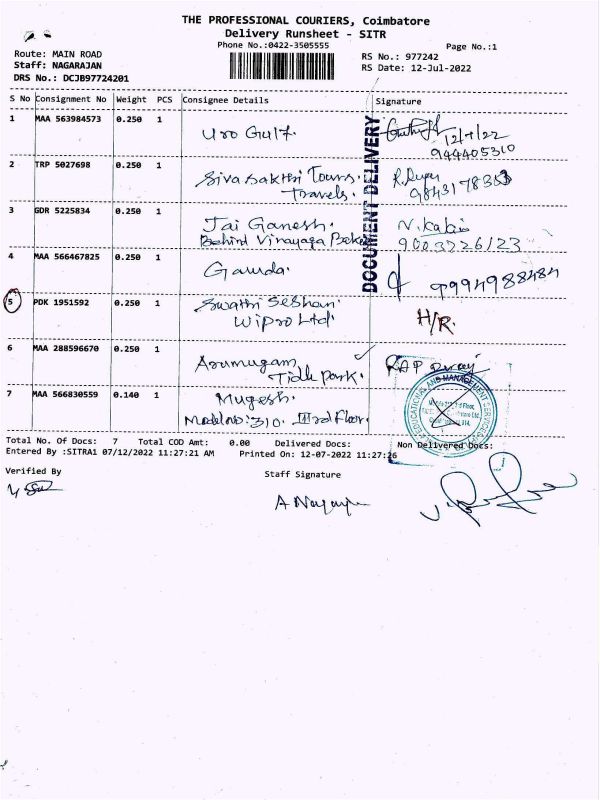 THE PROFESSIONAL COURIERS, Coimbatore
Delivery Runsheet - SITR
Phone No.:0422-3505555
Page No.:1
Route: MAIN ROAD
RS No.: 977242
Staff: NAGARAJAN
RS Date: 12-Jul-2022
DRS No.: DCJB97724201
S No Consignment No Weight PCS Consignee Details Signature
1 MAA 563984573 0.250 1 Uro Gulf. 12/7/22
944405310
2 TRP 5027698 0.250 1 Siva Sakthi Tours.
Travels.
3 GDR 5225834 0.250 1 Jai Ganesh.
Behind Vinayaga
9003226123
4 MAA 566467825 0.250 1 Gowda. 9994988484
5 PDK 1951592 0.250 1 Swathi Seshan. H/R.
Wipro Ltd
6 MAA 288596670 0.250 1 Arumugam
Tidle Park.
7 MAA 566830559 0.140 1 Mugesh.
310. IIIrd Floor.
DOCUMENT DELIVERY
Total No. Of Docs: 7 Total COD Amt: 0.00 Delivered Docs: Non Delivered Docs:
Entered By :SITRA1 07/12/2022 11:27:21 AM Printed On: 12-07-2022 11:27:26
Verified By
Staff Signature